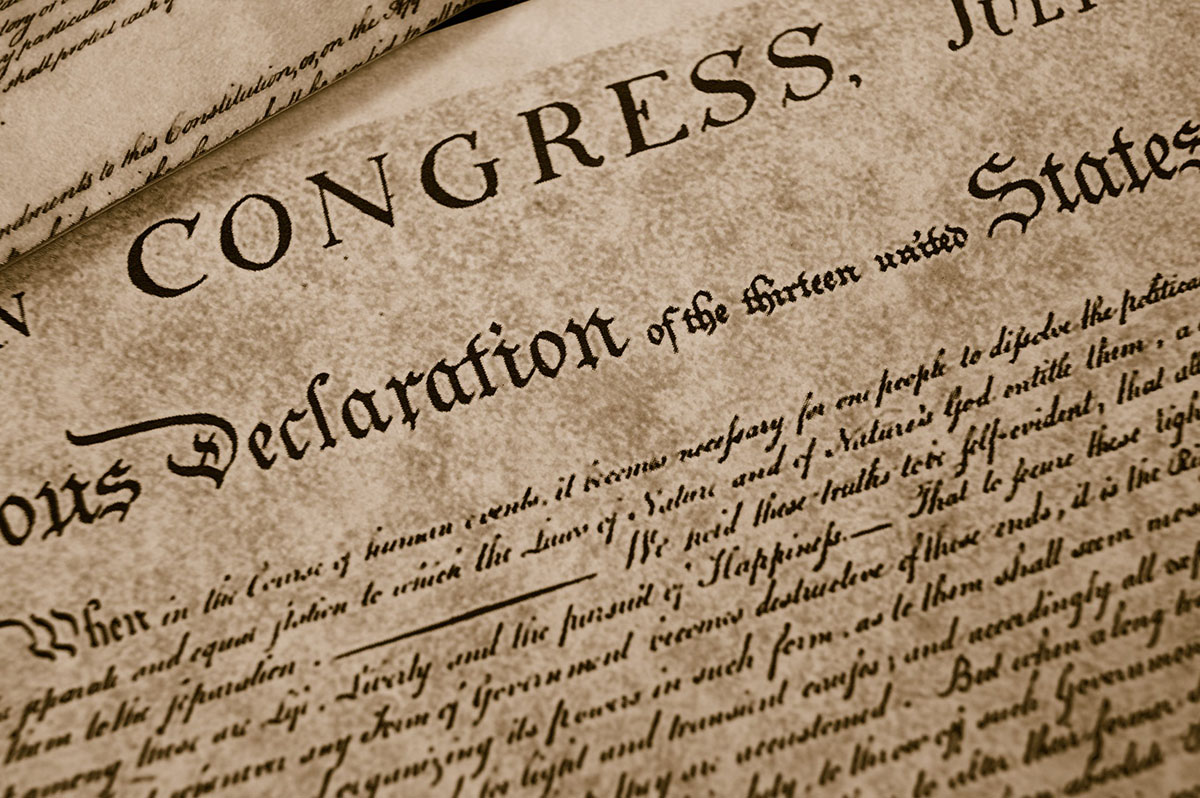 tory or
y particular
shall protect each of
ndments to this Constitution, or, on the App
shall be valid to all
N CONGRESS, JULY
ous Declaration of the thirteen united States
When in the Course of human events, it becomes neceſsary for one people to diſsolve the political
ſeparate and equal ſtation to which the Laws of Nature and of Nature's God entitle them, a
them to the ſeparation. ——— We hold these truths to be ſelf-evident, that all
among these are Life, Liberty and the pursuit of Happineſs.— That to ſecure these righ
whenever any Form of Government becomes destructive of these ends, it is the Ri
organizing its powers in such form, as to them shall seem mos
light and transient cauſes; and accordingly all exp
they are accustomed. But when a long tr
to throw off such Government
to alter their former
absolute